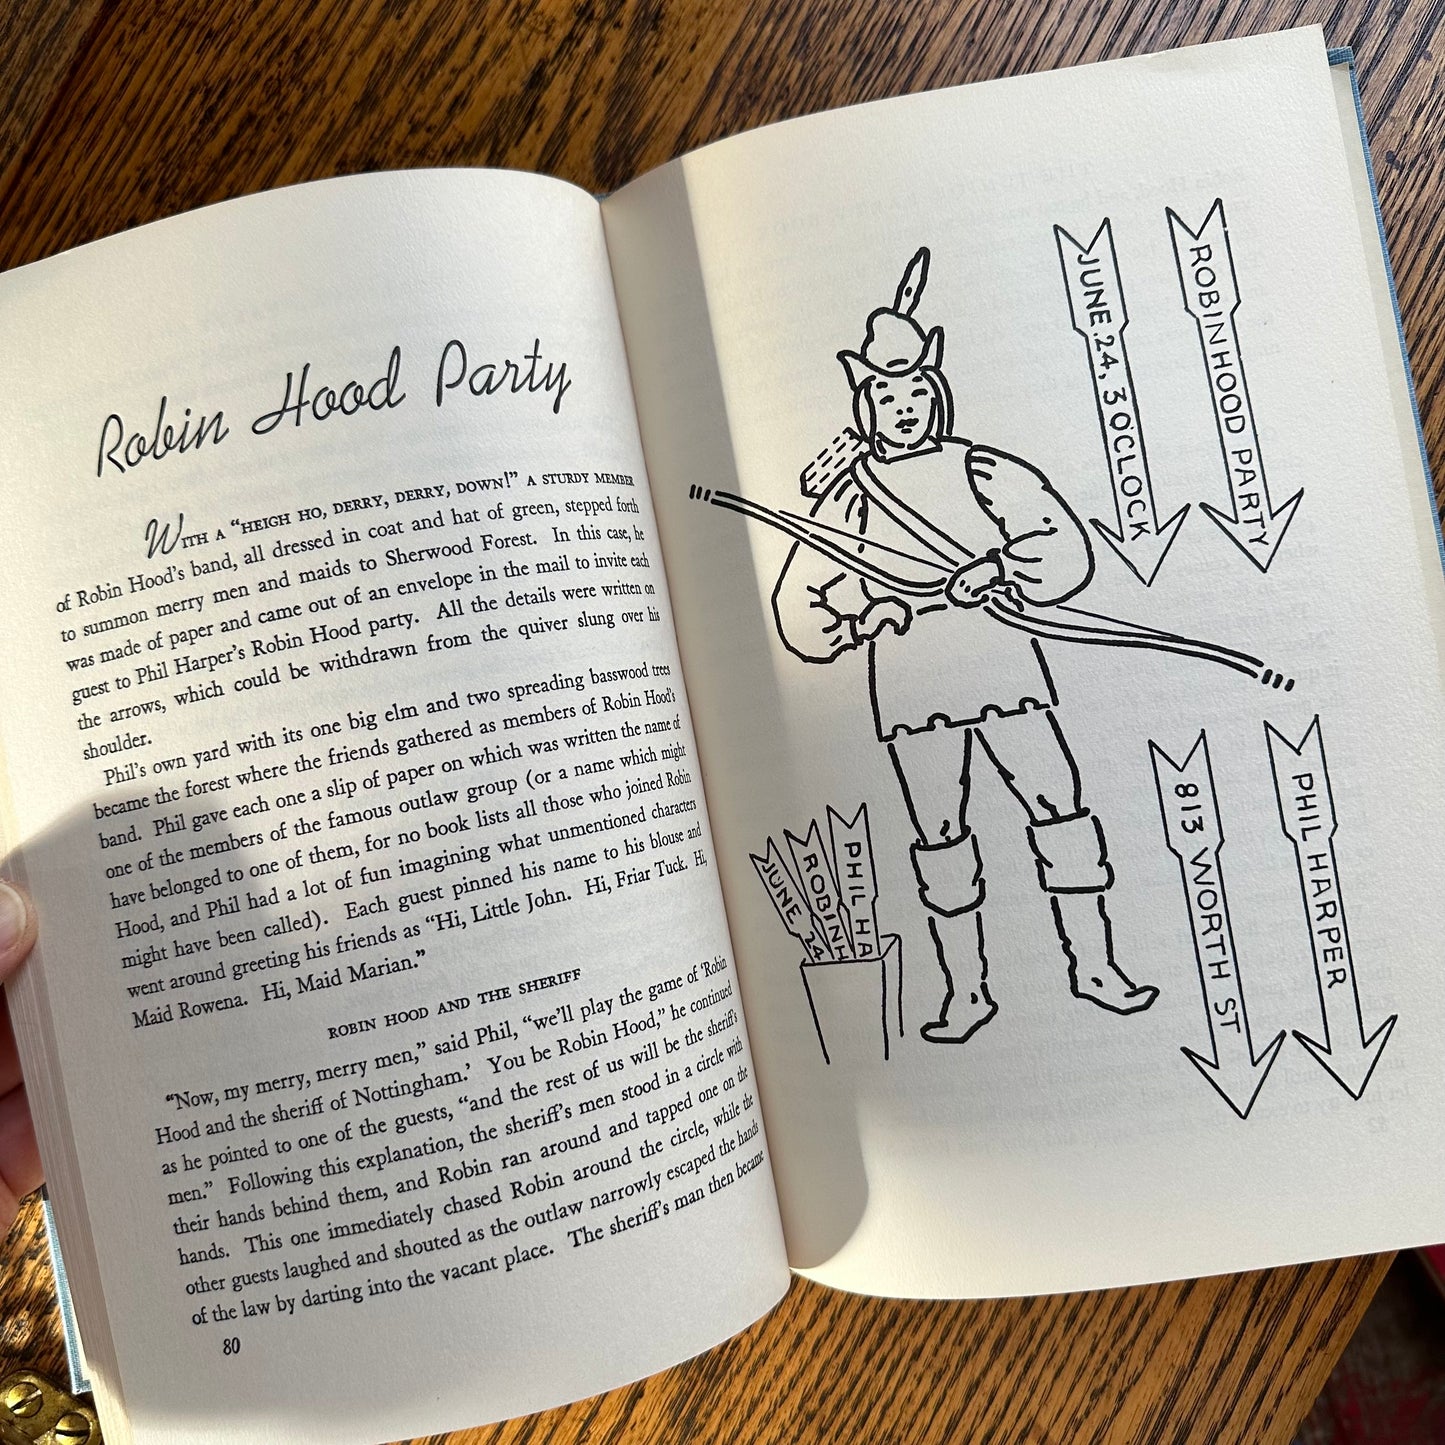 Robin Hood Party
WITH A “HEIGH HO, DERRY, DERRY, DOWN!” A STURDY MEMBER
of Robin Hood’s band, all dressed in coat and hat of green, stepped forth
to summon merry men and maids to Sherwood Forest. In this case, he
was made of paper and came out of an envelope in the mail to invite each
guest to Phil Harper’s Robin Hood party. All the details were written on
the arrows, which could be withdrawn from the quiver slung over his
shoulder.
Phil’s own yard with its one big elm and two spreading basswood trees
became the forest where the friends gathered as members of Robin Hood’s
band. Phil gave each one a slip of paper on which was written the name of
one of the members of the famous outlaw group (or a name which might
have belonged to one of them, for no book lists all those who joined Robin
Hood, and Phil had a lot of fun imagining what unmentioned characters
might have been called). Each guest pinned his name to his blouse and
went around greeting his friends as “Hi, Little John. Hi, Friar Tuck. Hi,
Maid Rowena. Hi, Maid Marian.”
ROBIN HOOD AND THE SHERIFF
“Now, my merry, merry men,” said Phil, “we’ll play the game of ‘Robin
Hood and the sheriff of Nottingham.’ You be Robin Hood,” he continued
as he pointed to one of the guests, “and the rest of us will be the sheriff’s
men.” Following this explanation, the sheriff’s men stood in a circle with
their hands behind them, and Robin ran around and tapped one on the
hands. This one immediately chased Robin around the circle, while the
other guests laughed and shouted as the outlaw narrowly escaped the hands
of the law by darting into the vacant place. The sheriff’s man then became
80
JUNE 24, 3 O'CLOCK
ROBIN HOOD PARTY
813 WORTH ST
PHIL HARPER
JUNE 24
ROBINH
PHIL HA